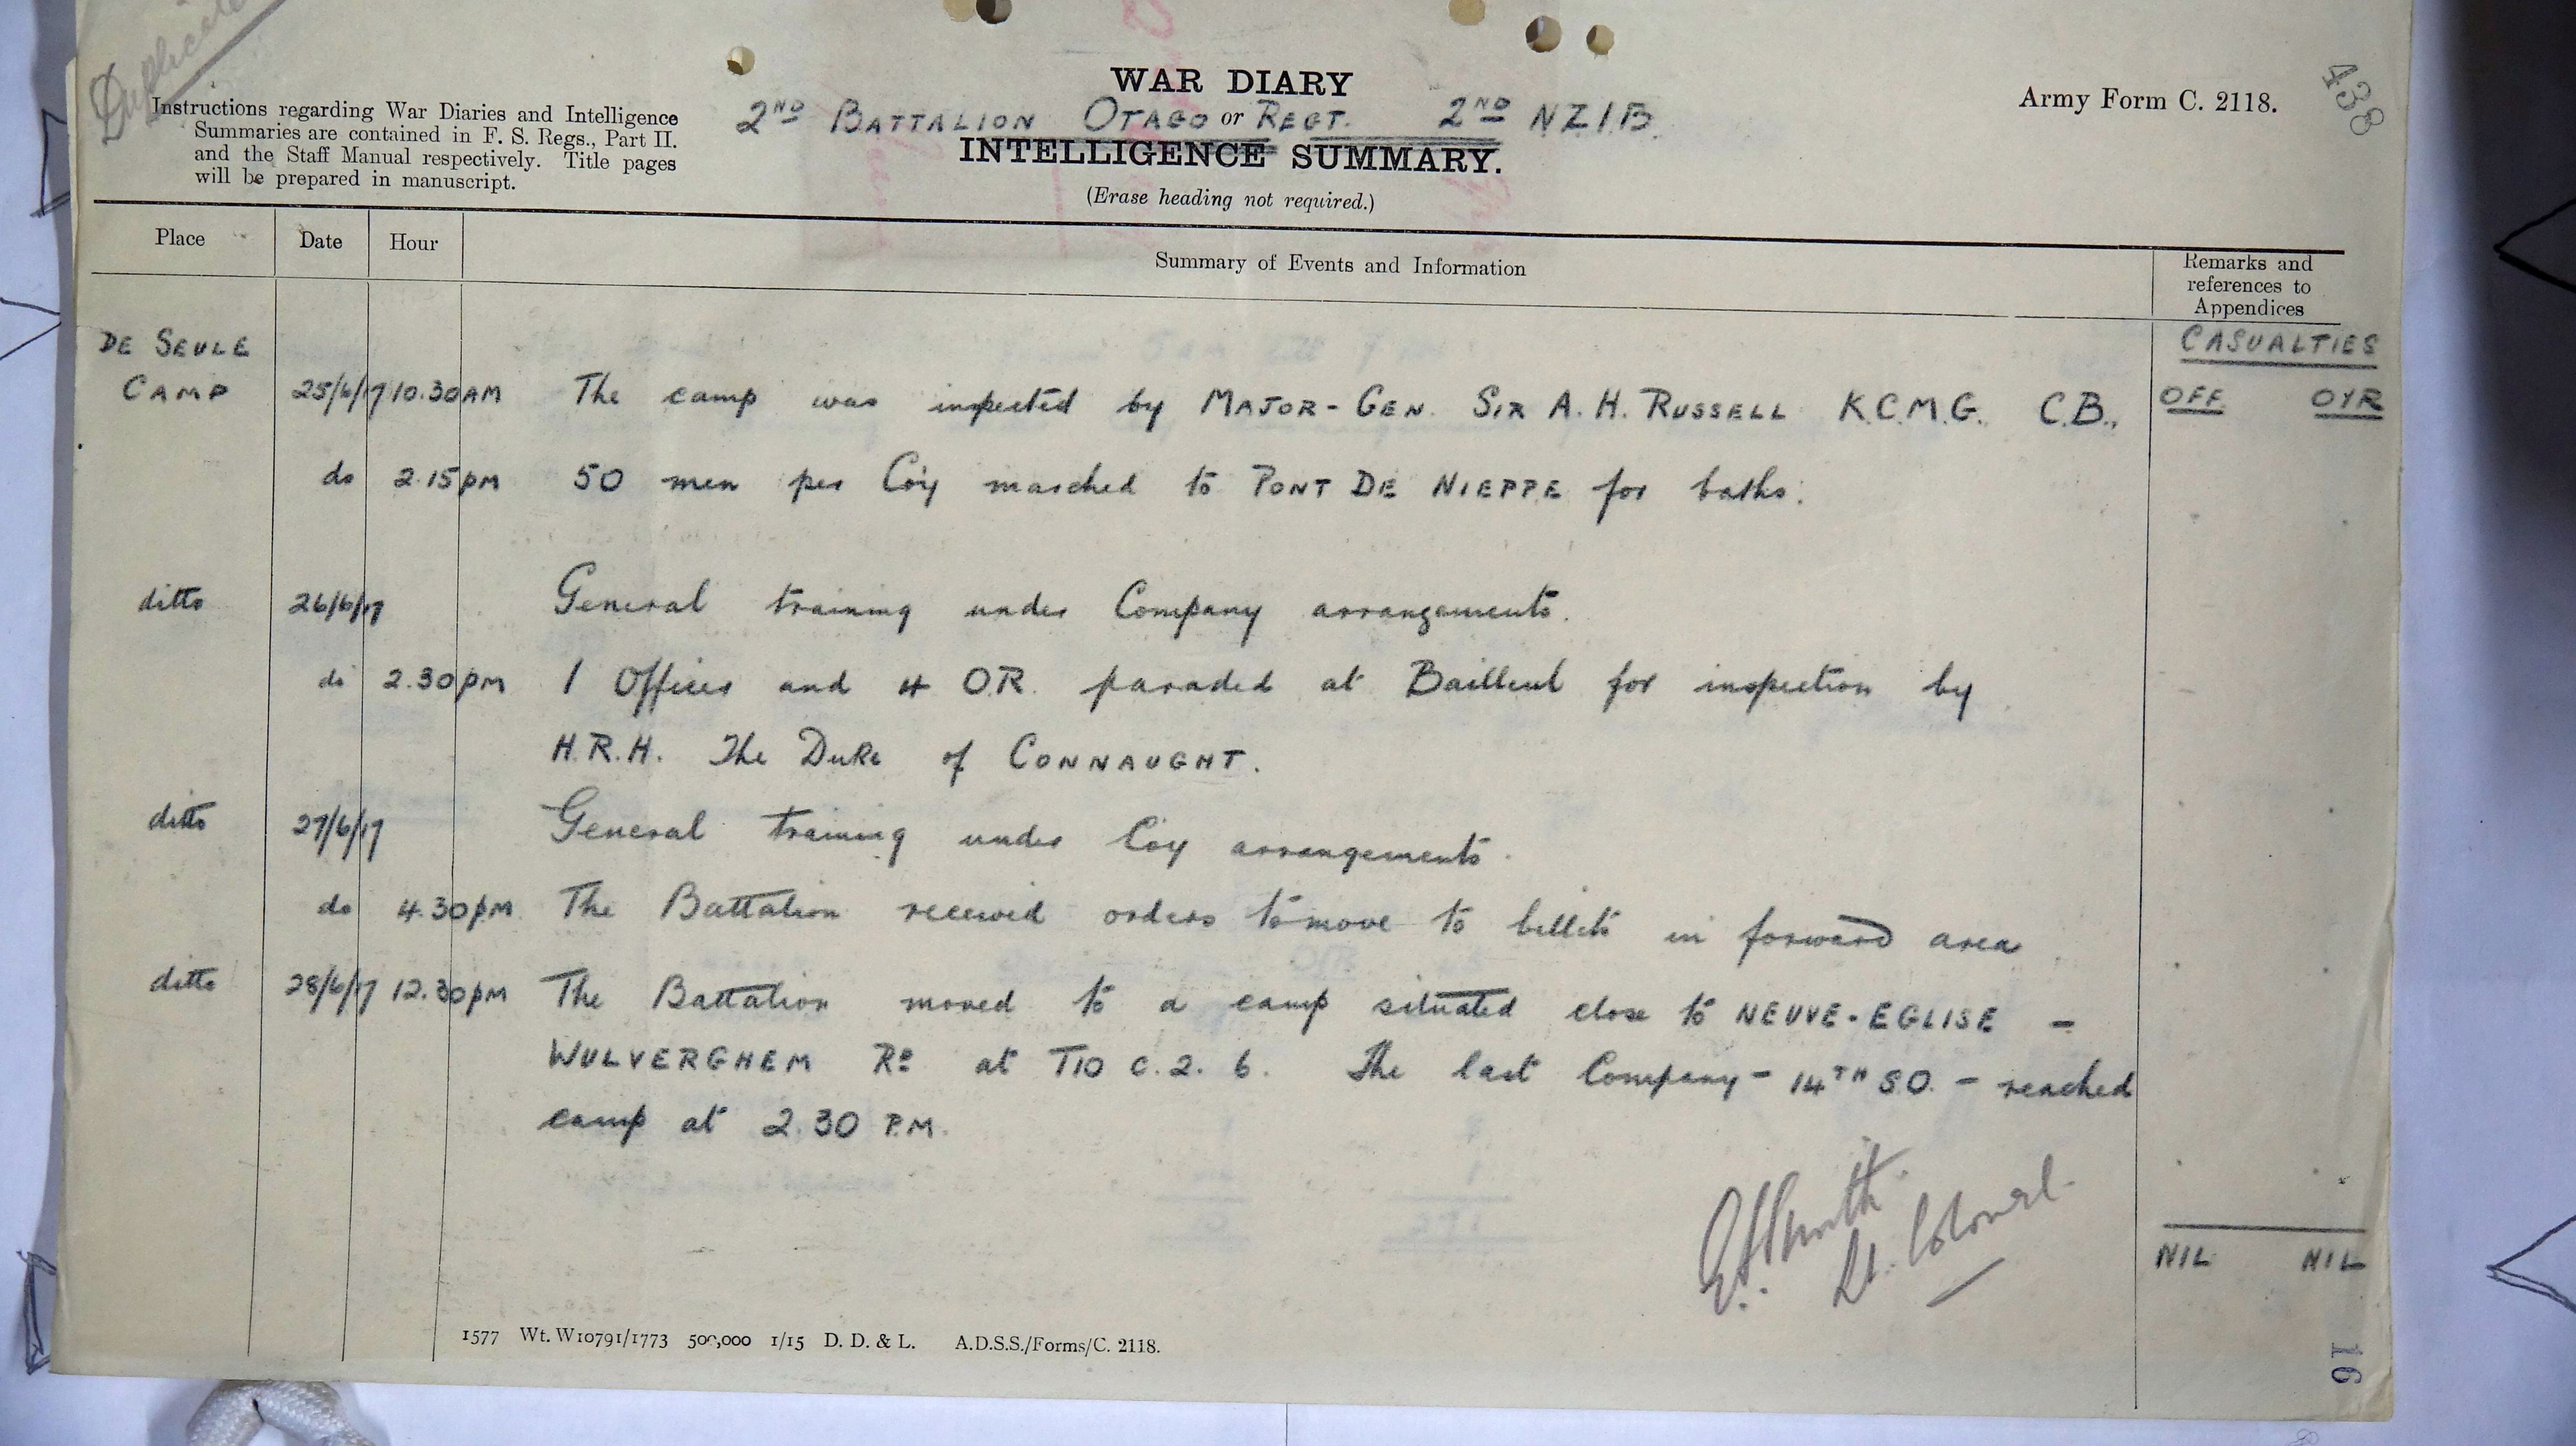 Duplicate
438
WAR DIARY
Army Form C. 2118.
Instructions regarding War Diaries and Intelligence
Summaries are contained in F. S. Regs., Part II.
and the Staff Manual respectively. Title pages
will be prepared in manuscript.
2ND BATTALION OTAGO or REGT. 2ND NZIB.
INTELLIGENCE SUMMARY.
(Erase heading not required.)
Place Date Hour Summary of Events and Information Remarks and
references to
Appendices
DE SEULE CASUALTIES
CAMP 25/6/17 10.30AM The camp was inspected by MAJOR-GEN. SIR A. H. RUSSELL K.C.M.G. C.B., OFF. OYR
do 2.15pm 50 men per Coy marched to PONT DE NIEPPE for baths.
ditto 26/6/17 General training under Company arrangements.
do 2.30pm 1 Officer and 4 O.R. paraded at Bailleul for inspection by
H.R.H. The Duke of CONNAUGHT.
ditto 27/6/17 General training under Coy arrangements.
do 4.30pm The Battalion received orders to move to billets in forward area
ditto 28/6/17 12.30pm The Battalion moved to a camp situated close to NEUVE-EGLISE -
WULVERGHEM Rd at T10 C.2.6. The last Company - 14TH S.O. - reached
camp at 2.30 P.M.
Smith
Lt. Colonel
NIL NIL
1577 Wt. W10791/1773 500,000 1/15 D. D. & L. A.D.S.S./Forms/C. 2118.
16